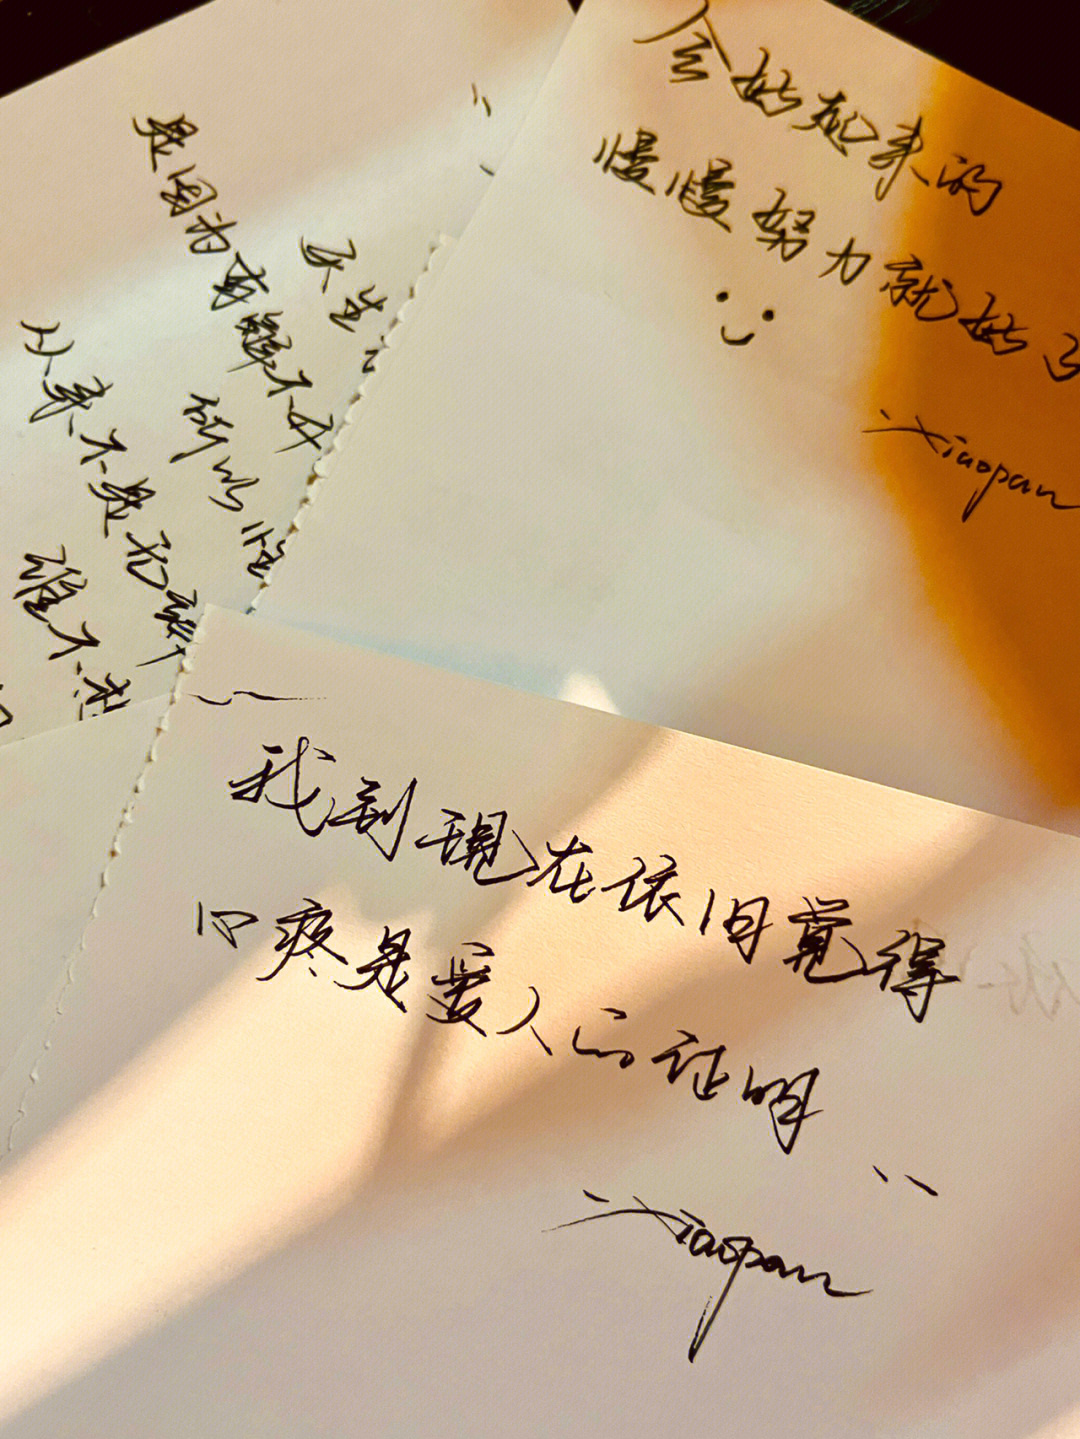 会好起来的
慢慢努力就好了
Xiaopan
天生
是因为有解不
所以性
从来不是无
谁不想
我到现在依旧觉得
心疼是爱人的证明
Xiaopan